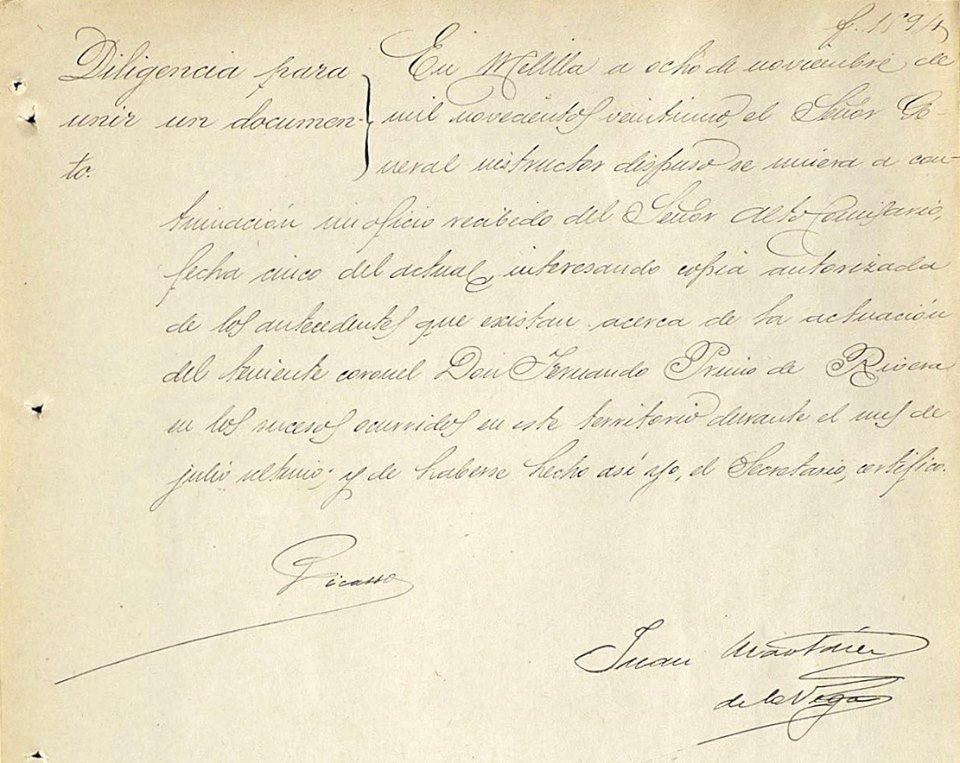 Diligencia para
unir un documen-
to.
En Melilla a ocho de noviembre de
mil novecientos veintiuno, el Señor Ge-
neral instructor dispuso se uniera a con-
tinuación un oficio recibido del Señor Alto Comisario,
fecha cinco del actual, interesando copia autorizada
de los antecedentes que existan acerca de la actuación
del teniente coronel Don Fernando Primo de Rivera
en los sucesos ocurridos en este territorio durante el mes de
julio último; y de haberse hecho así yo, el Secretario, certifico.
Picasso
Juan Martínez
de la Vega